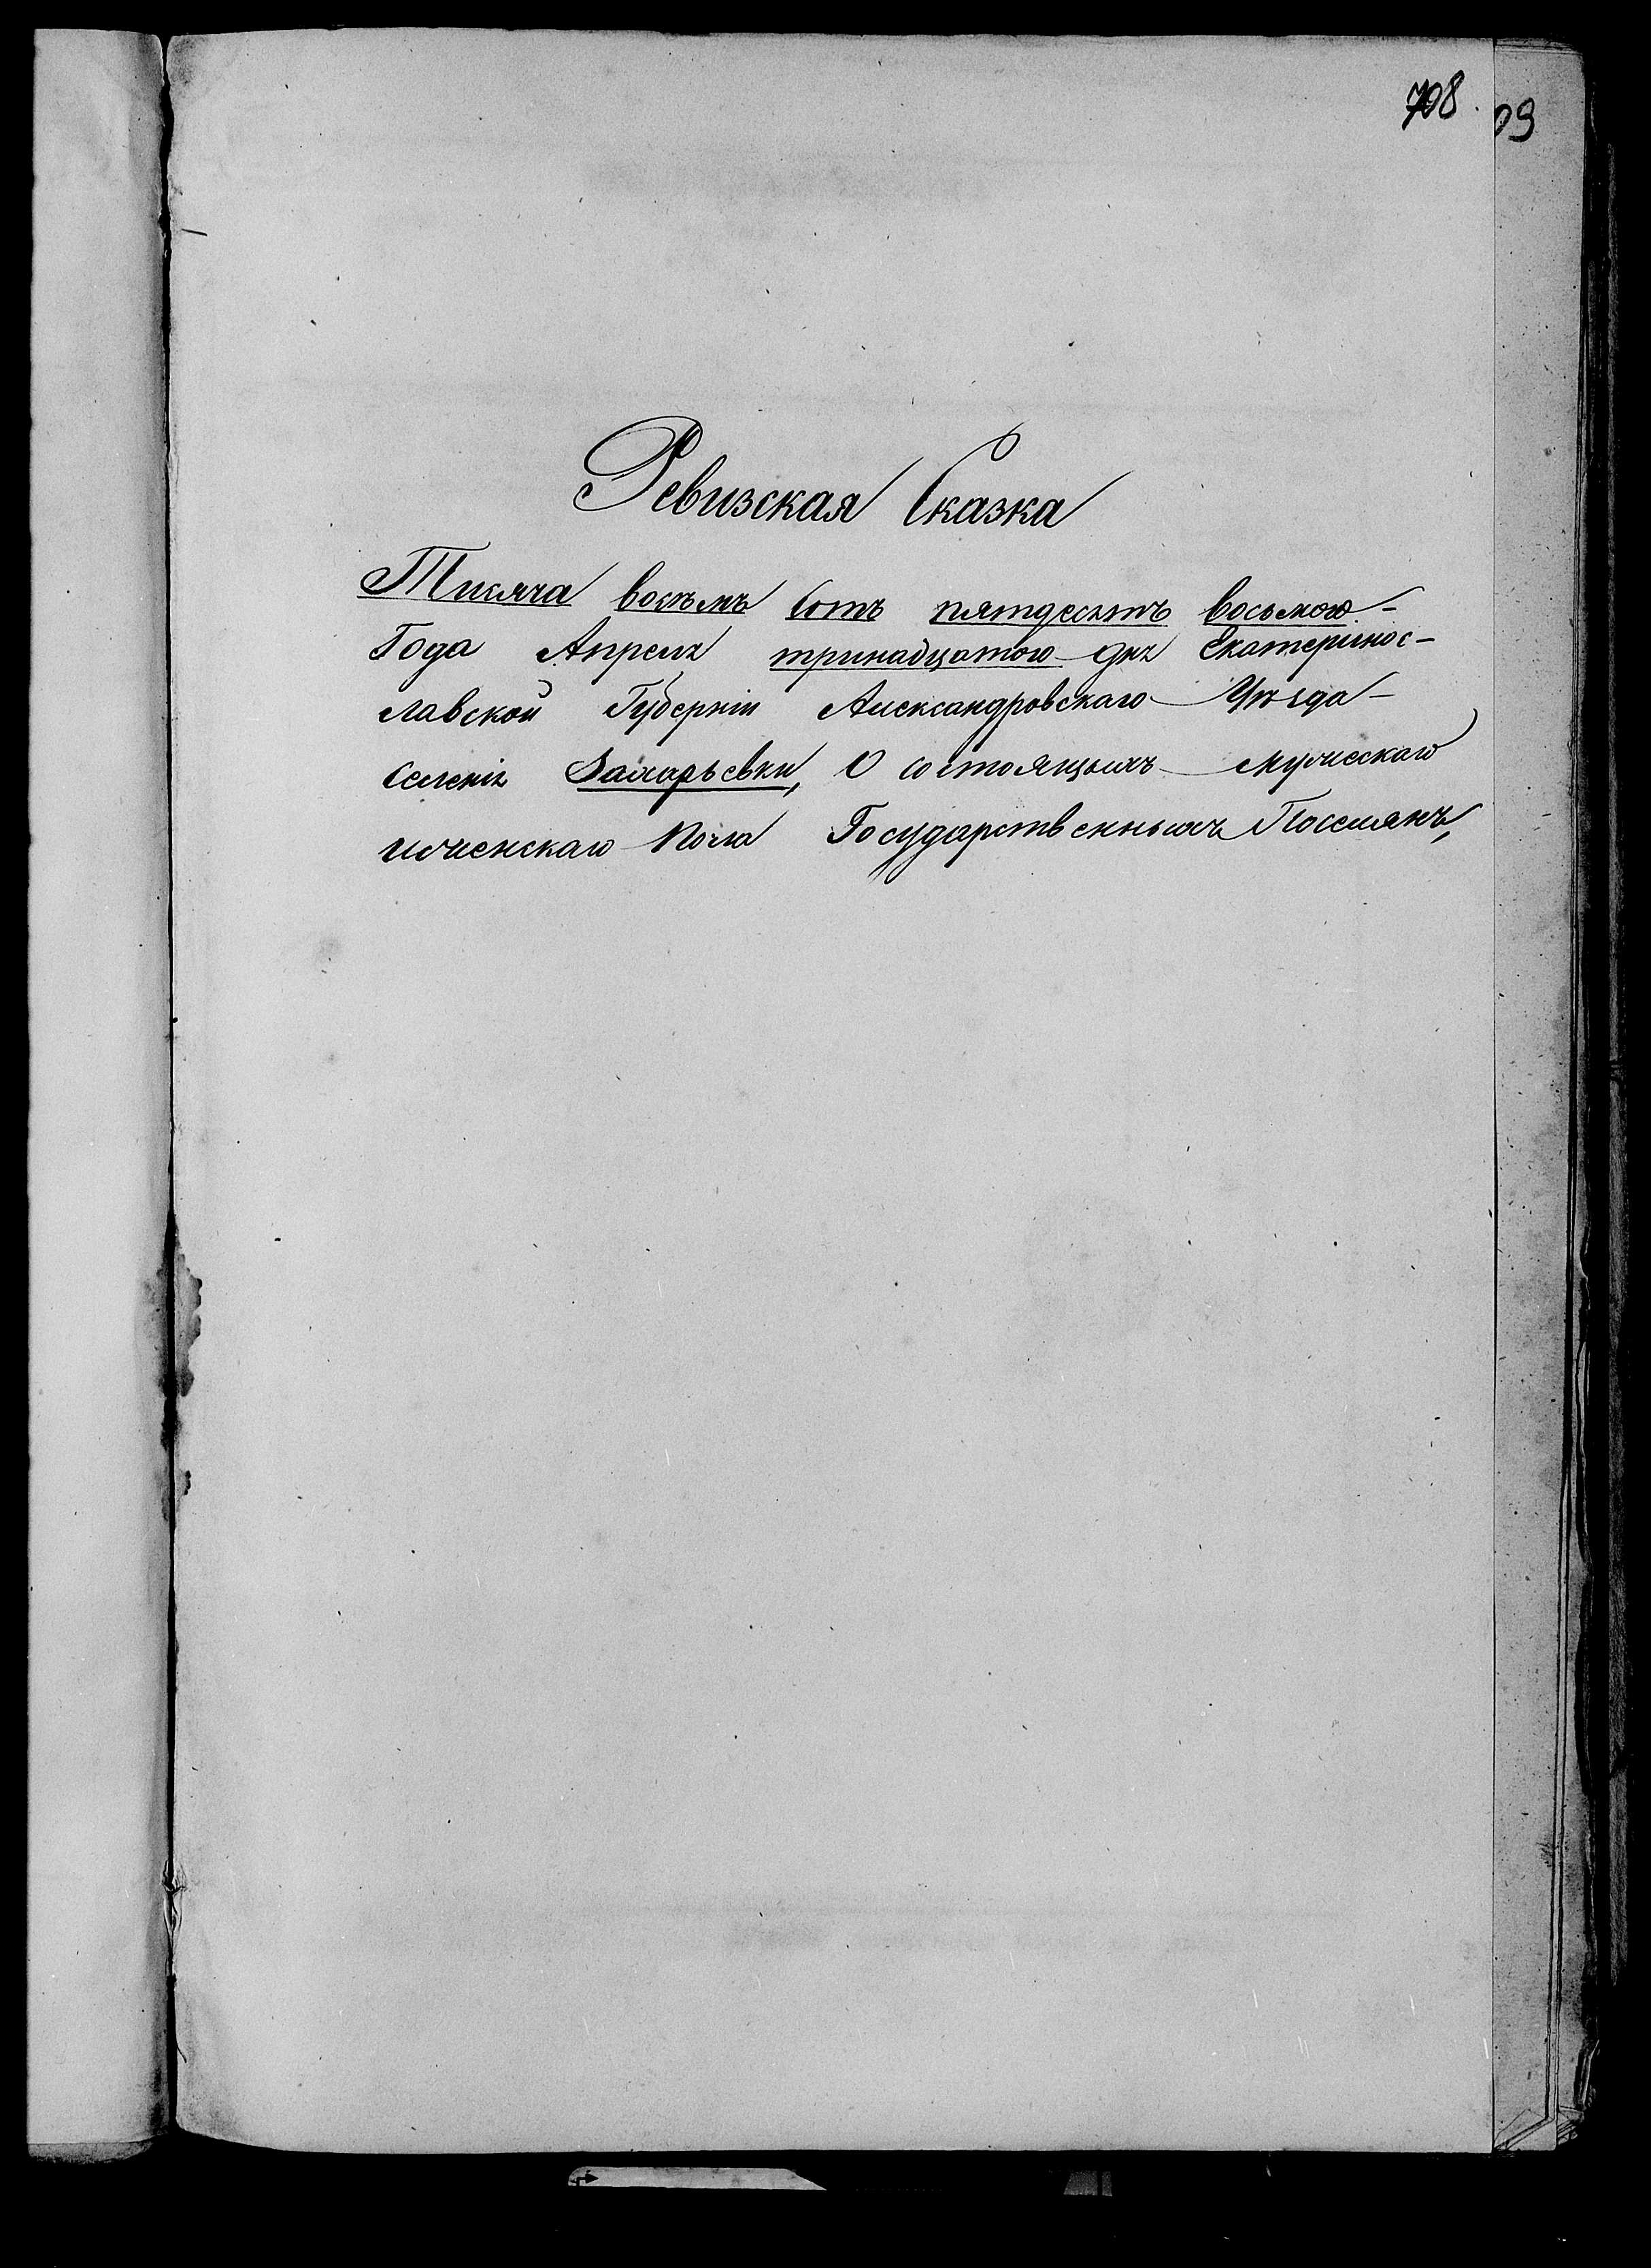 708.
09
Ревизская Сказка
Тисяча восъмъ Сотъ пятдесятъ восьмого -
Года Апреля тринадцатого дня Екатеринос-
лавской Губернiи Александровскаго Уѣзда -
Селенiя О состоящихъ мужескаго
иженскаго Пола Государственныхъ Поселянъ,